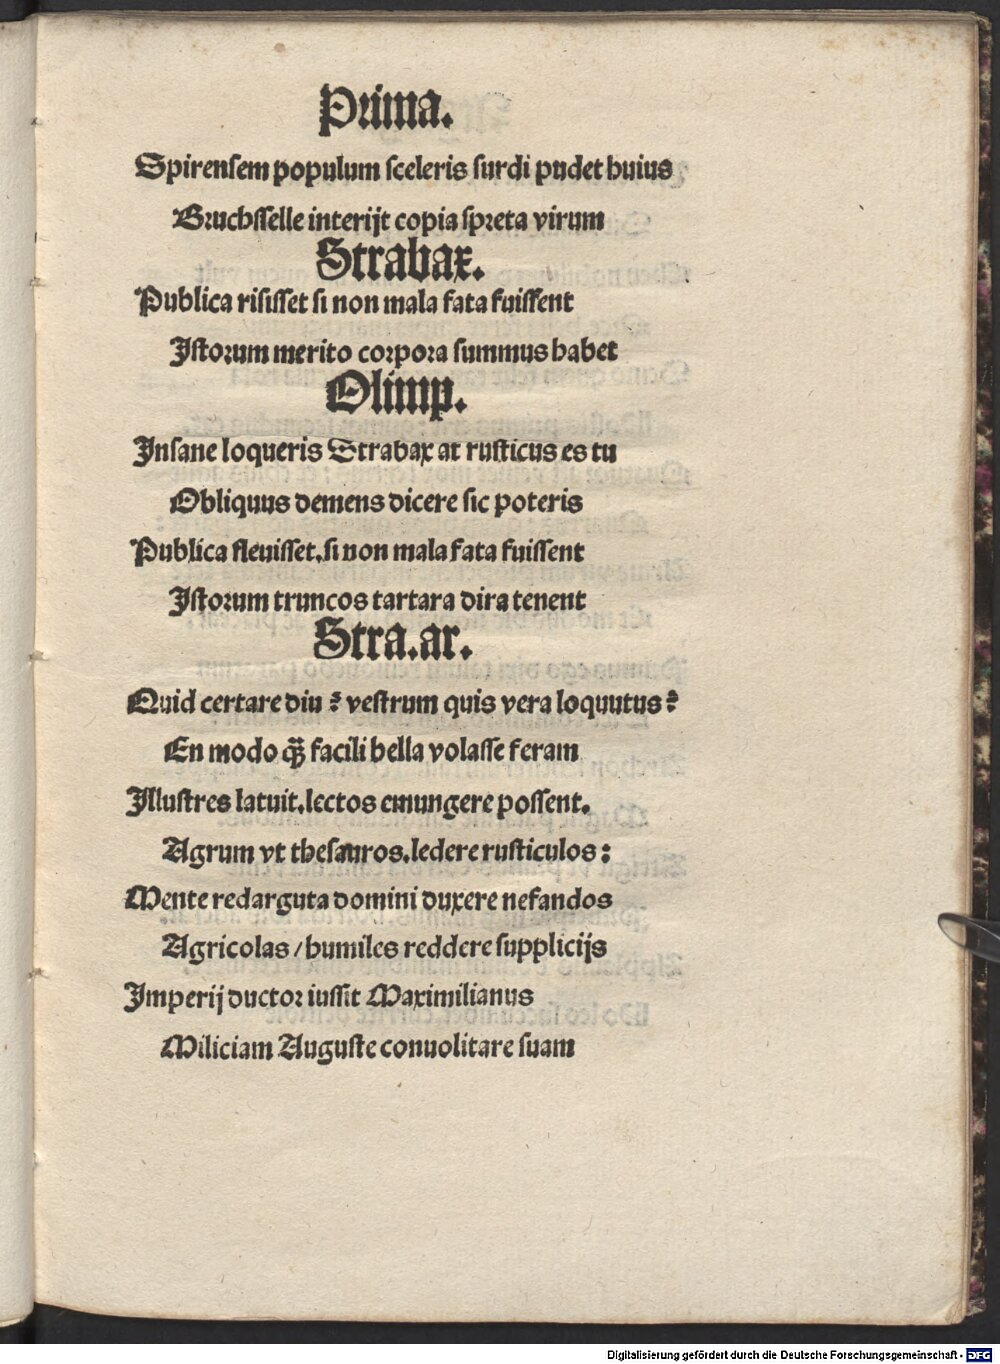 Prima.
Spirensem populum sceleris surdi pudet huius
Bruchsselle interijt copia spreta virum
Strabax.
Publica risisset si non mala fata fuissent
Istorum merito corpora summus habet
Olimp.
Insane loqueris Strabax at rusticus es tu
Obliquus demens dicere sic poteris
Publica fleuisset.si non mala fata fuissent
Istorum truncos tartara dira tenent
Stra.ar.
Quid certare diu? vestrum quis vera loquutus?
En modo q̃ facili bella volasse feram
Illustres latuit.lectos emungere possent.
Agrum vt thesauros.ledere rusticulos:
Mente redarguta domini duxere nefandos
Agricolas/humiles reddere supplicijs
Imperij ductor iussit Maximilianus
Miliciam Auguste conuolitare suam
Digitalisierung gefördert durch die Deutsche Forschungsgemeinschaft - DFG